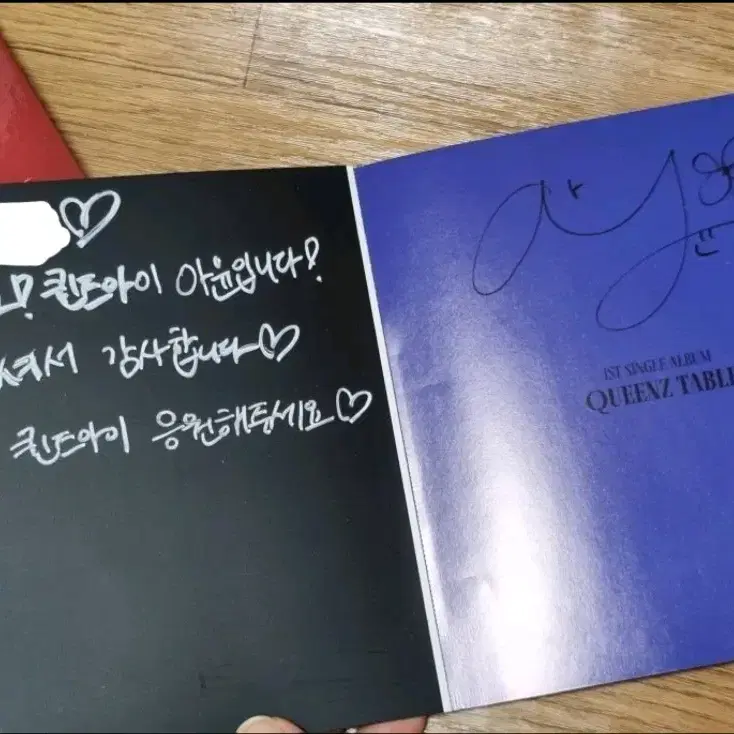 ♡
퀸즈아이 아윤입니다!
셔서 감사합니다♡
퀸즈아이 응원해주세요♡
1ST SINGLE ALBUM
QUEENZ TABLE